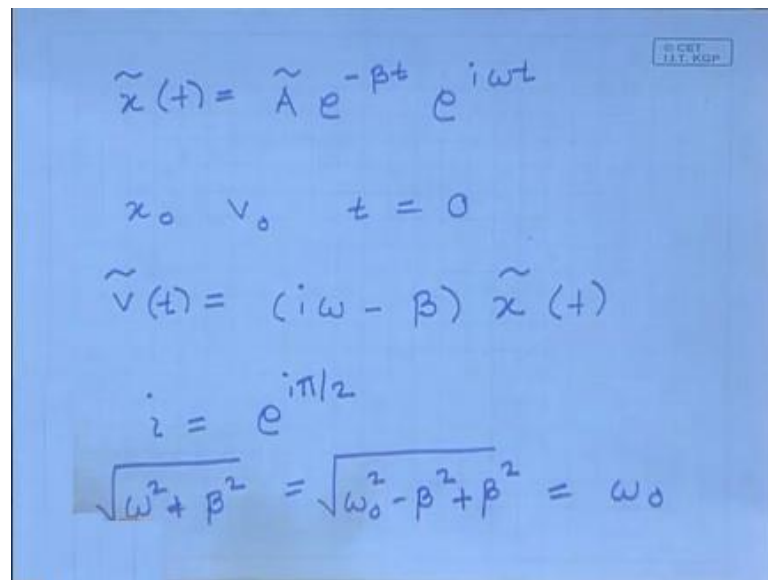 © CET
I.I.T. KGP
x̃ (t) = Ã e^{-βt} e^{iωt}
x₀ v₀ t = 0
ṽ (t) = (iω - β) x̃ (t)
i = e^{iπ/2}
√(ω² + β²) = √(ω₀² - β² + β²) = ω₀